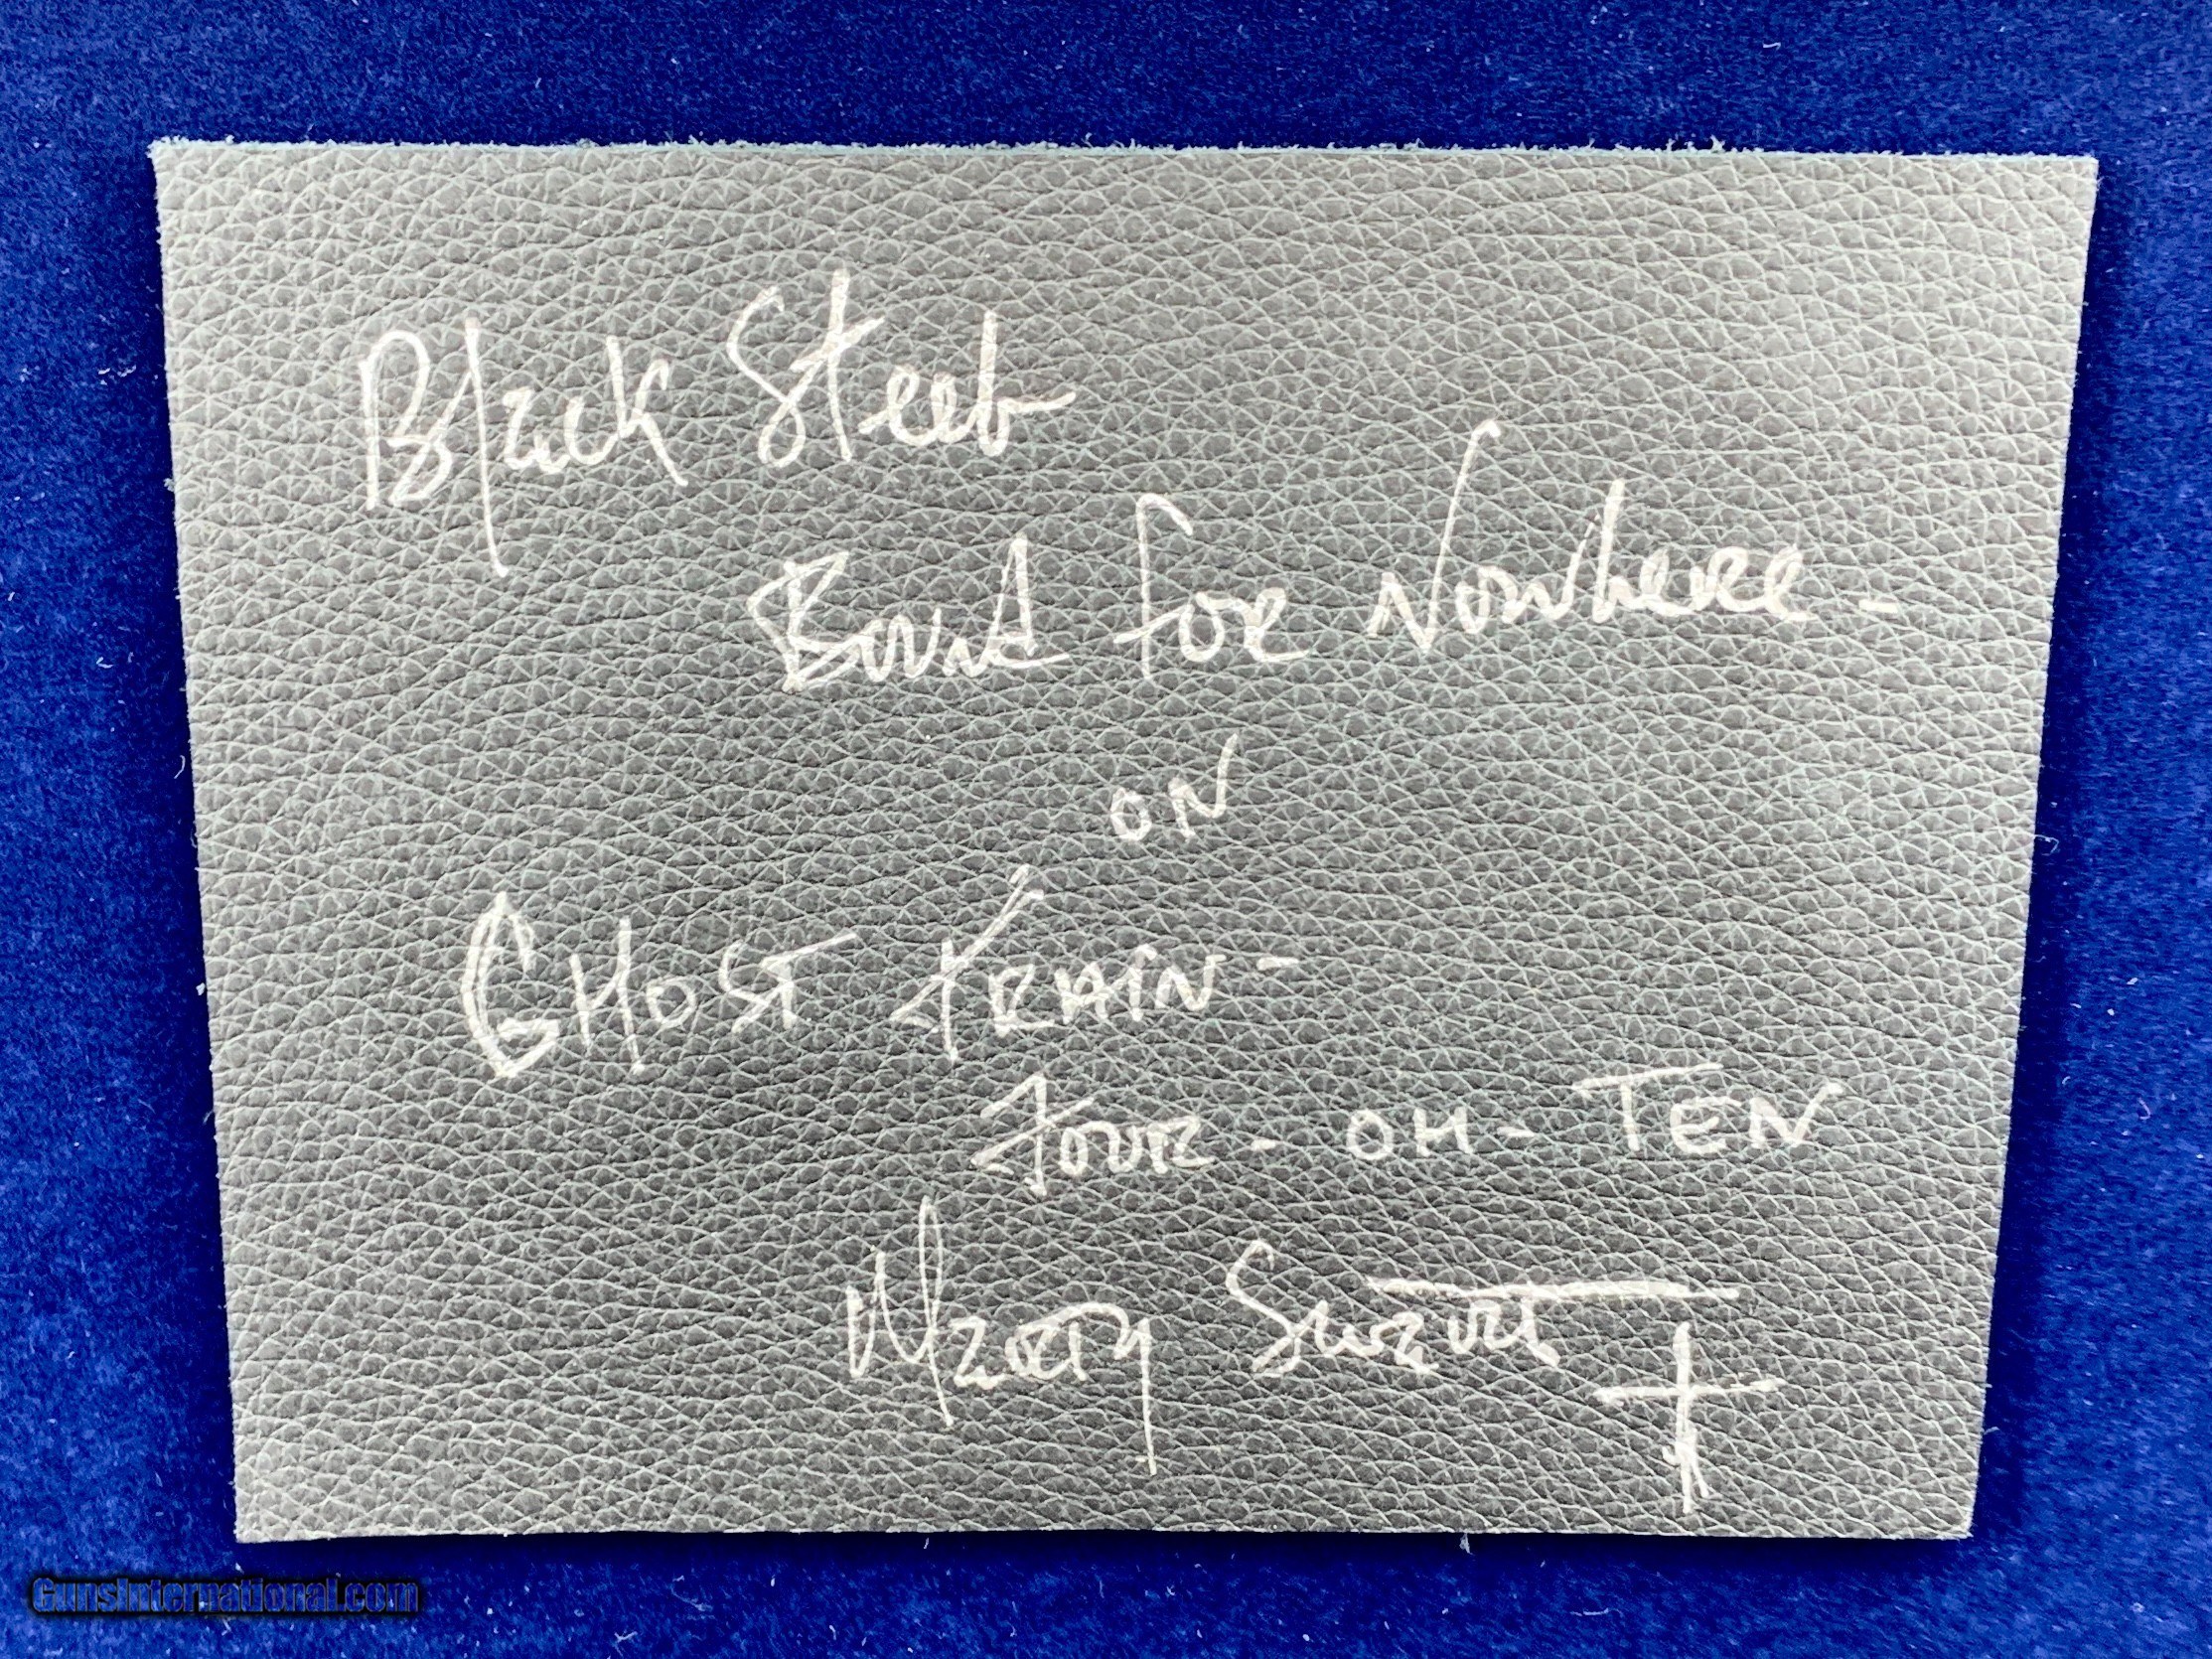 Black Steel
Bound for Nowhere -
ON
GHOST TRAIN -
FOUR - OH - TEN
Marty Stuart
GunsInternational.com